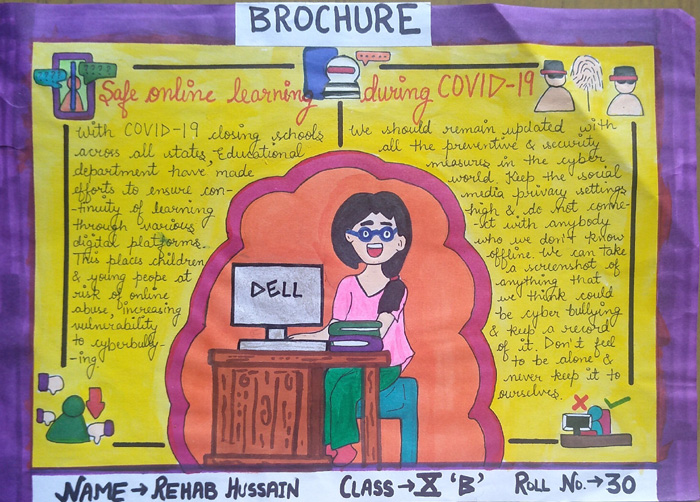 BROCHURE
Safe online learning during COVID-19
With COVID-19 closing schools
across all states, Educational
department have made
efforts to ensure con-
-tinuity of learning
through various
digital platforms.
This places children
& young peope at
risk of online
abuse, increasing
vulnerability
to cyberbully-
-ing.
We should remain updated with
all the preventive & security
measures in the cyber
world. Keep the social
media privacy settings
high & do not conne-
-ct with anybody
who we don't know
offline. We can take
a screenshot of
anything that
we think could
be cyber bullying
& keep a record
of it. Don't feel
to be alone &
never keep it to
ourselves.
DELL
NAME → REHAB HUSSAIN CLASS → X 'B' ROLL NO. → 30